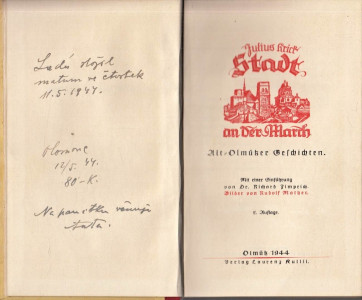 Láďa složil
maturu ve čtvrtek
11.5.1944.
Olomouc
12/5. 44.
80.-K.
Na památku věnuje
Julius Krick
Stadt
an der March
Alt-Olmützer Geschichten.
Mit einer Einführung
von Dr. Richard Zimprich.
Bilder von Rudolf Mather.
2. Auflage.
Olmütz 1944
Verlag Laurenz Kullil.